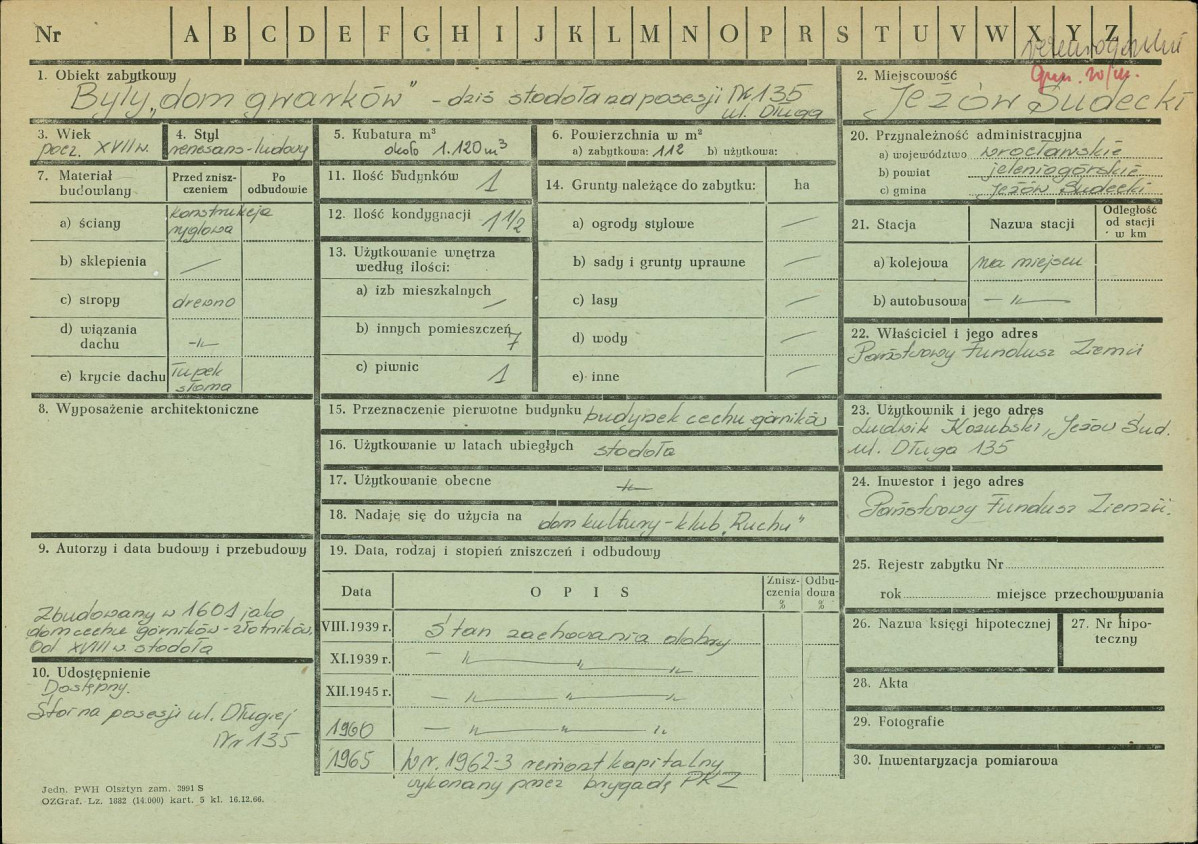 Nr A B C D E F G H I J K L M N O P R S T U V W X Y Z
1. Obiekt zabytkowy
Były „dom gwarków" - dziś stodoła na posesji Nr 135
ul. Długa
2. Miejscowość
Jeżów Sudecki
3. Wiek
pocz. XVII w.
4. Styl
renesans-ludowy
5. Kubatura m³
około 1.120 m³
6. Powierzchnia w m²
a) zabytkowa: 112 b) użytkowa:
7. Materiał budowlany
Przed zniszczeniem
Po odbudowie
a) ściany konstrukcja ryglowa
b) sklepienia —
c) stropy drewno
d) wiązania dachu -"-
e) krycie dachu łupek słoma
11. Ilość budynków 1
12. Ilość kondygnacji 1 1/2
13. Użytkowanie wnętrza
według ilości:
a) izb mieszkalnych —
b) innych pomieszczeń 7
c) piwnic 1
14. Grunty należące do zabytku: ha
a) ogrody stylowe —
b) sady i grunty uprawne —
c) lasy —
d) wody —
e) inne —
8. Wyposażenie architektoniczne
9. Autorzy i data budowy i przebudowy
Zbudowany w 1601 jako
dom cechu górników-złotników.
Od XVIII w. stodoła
10. Udostępnienie
Dostępny.
Stoi na posesji ul. Długiej
Nr 135
15. Przeznaczenie pierwotne budynku budynek cechu górników
16. Użytkowanie w latach ubiegłych stodoła
17. Użytkowanie obecne -"-
18. Nadaję się do użycia na dom kultury - klub „Ruchu"
19. Data, rodzaj i stopień zniszczeń i odbudowy
Data OPIS Zniszczenia % Odbudowa %
VIII.1939 r. Stan zachowania dobry
XI.1939 r. — " — " — "
XII.1945 r. — " — " — "
1960 — " — " — "
1965 W r. 1962-3 remont kapitalny
wykonany przez brygadę PKZ
20. Przynależność administracyjna
a) województwo wrocławskie
b) powiat jeleniogórskie
c) gmina Jeżów Sudecki
21. Stacja Nazwa stacji Odległość od stacji w km
a) kolejowa na miejscu
b) autobusowa — " —
22. Właściciel i jego adres
Państwowy Fundusz Ziemi
23. Użytkownik i jego adres
Ludwik Kozubski, Jeżów Sud.
ul. Długa 135
24. Inwestor i jego adres
Państwowy Fundusz Ziemi.
25. Rejestr zabytku Nr
rok miejsce przechowywania
26. Nazwa księgi hipotecznej
27. Nr hipoteczny
28. Akta
29. Fotografie
30. Inwentaryzacja pomiarowa
Jedn. PWH Olsztyn zam. 3991 S
OZGraf. Lz. 1882 (14.000) kart. 5 kl. 16.12.66.